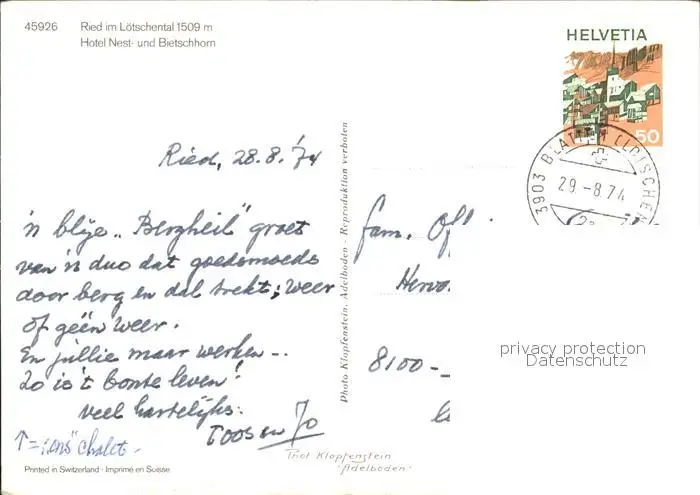 45926 Ried im Lötschental 1509 m
Hotel Nest- und Bietschhorn
HELVETIA
50
3903 BLATTEN (LÖTSCHEN
29-8.74
Ried, 28.8.'74
'n blije „Bergheil" groet
van 'n duo dat goedsmoeds
door berg en dal trekt; weer
of géén weer.
En jullie maar werken -..
Zo is 't bonte leven!
veel hartelijks:
Toos en Jo
↑ = „ons" chalet -
Printed in Switzerland - Imprimé en Suisse
Photo Klopfenstein, Adelboden - Reproduktion verboten
fam. Off
Hervo
8100-
Phot Klopfenstein
Adelboden
privacy protection
Datenschutz